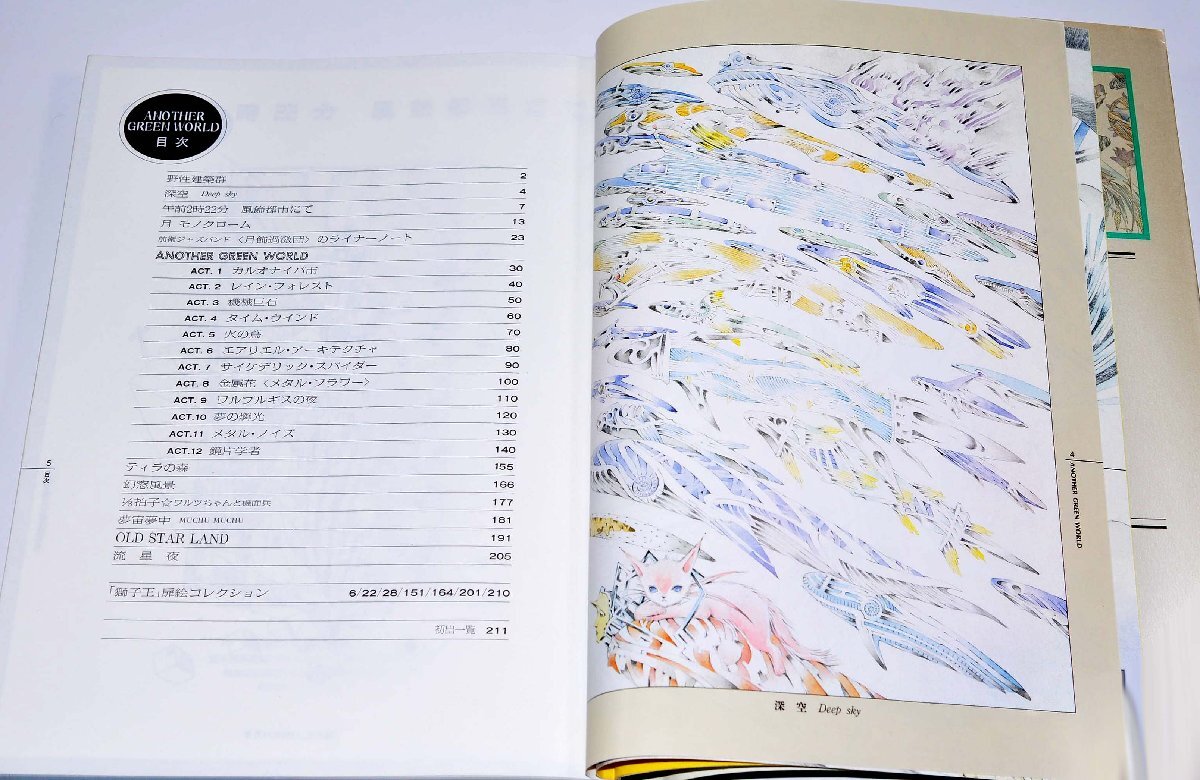 ANOTHER
GREEN WORLD
目 次
野性建築群 2
深空 Deep sky 4
午前2時22分 風鈴都市にて 7
月 モノクローム 13
〈月飾過敏症〉のライナーノート 23
ANOTHER GREEN WORLD
ACT. 1 カルオナイバ市 30
ACT. 2 レイン・フォレスト 40
ACT. 3 機械巨石 50
ACT. 4 タイム・ウインド 60
ACT. 5 火の鳥 70
ACT. 6 エアリエル・アーキテクチャ 80
ACT. 7 サイケデリック・スパイダー 90
ACT. 8 金属花〈メタル・フラワー〉 100
ACT. 9 ワルプルギスの夜 110
ACT.10 夢の弾光 120
ACT.11 メタル・ノイズ 130
ACT.12 鏡片学者 140
ティラの森 155
幻想風景 166
ワルツちゃんと織面兵 177
夢宙夢中 MUCHU MUCHU 181
OLD STAR LAND 191
流 星 夜 205
「獅子王」扉絵コレクション 6/22/28/151/164/201/210
初出一覧 211
5
目次
深 空 Deep sky
4
ANOTHER GREEN WORLD